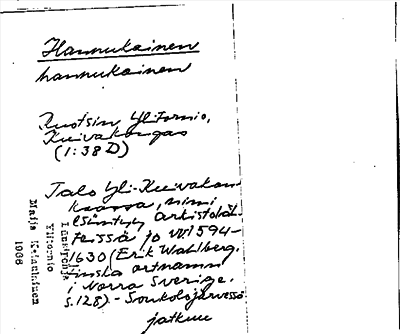 Hannukainen
hannukainen
Ruotsin Ylitornio,
Kuivakangas
(1:38 D)
Talo Yli-Kuivakan-
kaassa, nimi
esiintyy arkistoläh-
teissä jo vv. 1594-
1630 (Erik Wahlberg,
Finska ortnamn
i Norra Sverige.
s. 128). - Soukolojärvessä
jatkuu
Länsipohja
Ylitornio
Maija
1966